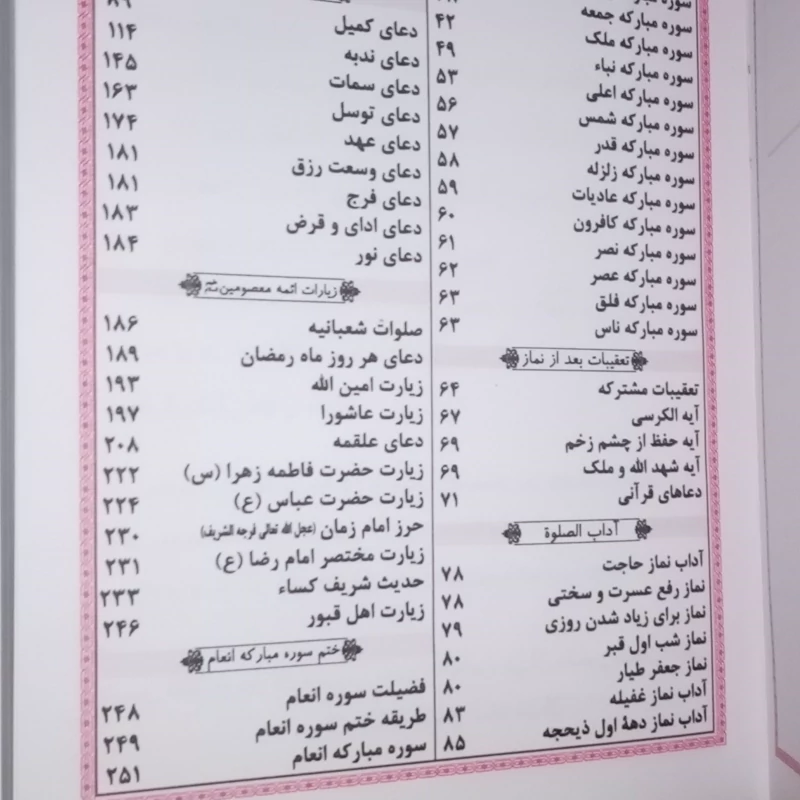 سوره مبارکه جمعه
سوره مبارکه ملک ۴۲
سوره مبارکه نباء ۴۹
سوره مبارکه اعلی ۵۳
سوره مبارکه شمس ۵۶
سوره مبارکه قدر ۵۷
سوره مبارکه زلزله ۵۸
سوره مبارکه عادیات ۵۹
سوره مبارکه کافرون ۶۰
سوره مبارکه نصر ۶۱
سوره مبارکه عصر ۶۲
سوره مبارکه فلق ۶۳
سوره مبارکه ناس ۶۳
تعقیبات بعد از نماز
تعقیبات مشترکه ۶۴
آیه الکرسی ۶۷
آیه حفظ از چشم زخم ۶۹
آیه شهد الله و ملک ۶۹
دعاهای قرآنی ۷۱
آداب الصلوة
آداب نماز حاجت ۷۸
نماز رفع عسرت و سختی ۷۸
نماز برای زیاد شدن روزی ۷۹
نماز شب اول قبر ۸۰
نماز جعفر طیار ۸۰
آداب نماز غفیله ۸۳
آداب نماز دههٔ اول ذیحجه ۸۵
دعای کمیل ۸۹
دعای ندبه ۱۱۴
دعای سمات ۱۴۵
دعای توسل ۱۶۳
دعای عهد ۱۷۴
دعای وسعت رزق ۱۸۱
دعای فرج ۱۸۱
دعای ادای و قرض ۱۸۳
دعای نور ۱۸۴
زیارات ائمه معصومین
صلوات شعبانیه ۱۸۶
دعای هر روز ماه رمضان ۱۸۹
زیارت امین الله ۱۹۳
زیارت عاشورا ۱۹۷
دعای علقمه ۲۰۸
زیارت حضرت فاطمه زهرا (س) ۲۲۲
زیارت حضرت عباس (ع) ۲۲۴
حرز امام زمان (عجل الله تعالی فرجه الشریف) ۲۳۰
زیارت مختصر امام رضا (ع) ۲۳۱
حدیث شریف کساء ۲۳۳
زیارت اهل قبور ۲۴۶
ختم سوره مبارکه انعام
فضیلت سوره انعام ۲۴۸
طریقه ختم سوره انعام ۲۴۹
سوره مبارکه انعام ۲۵۱